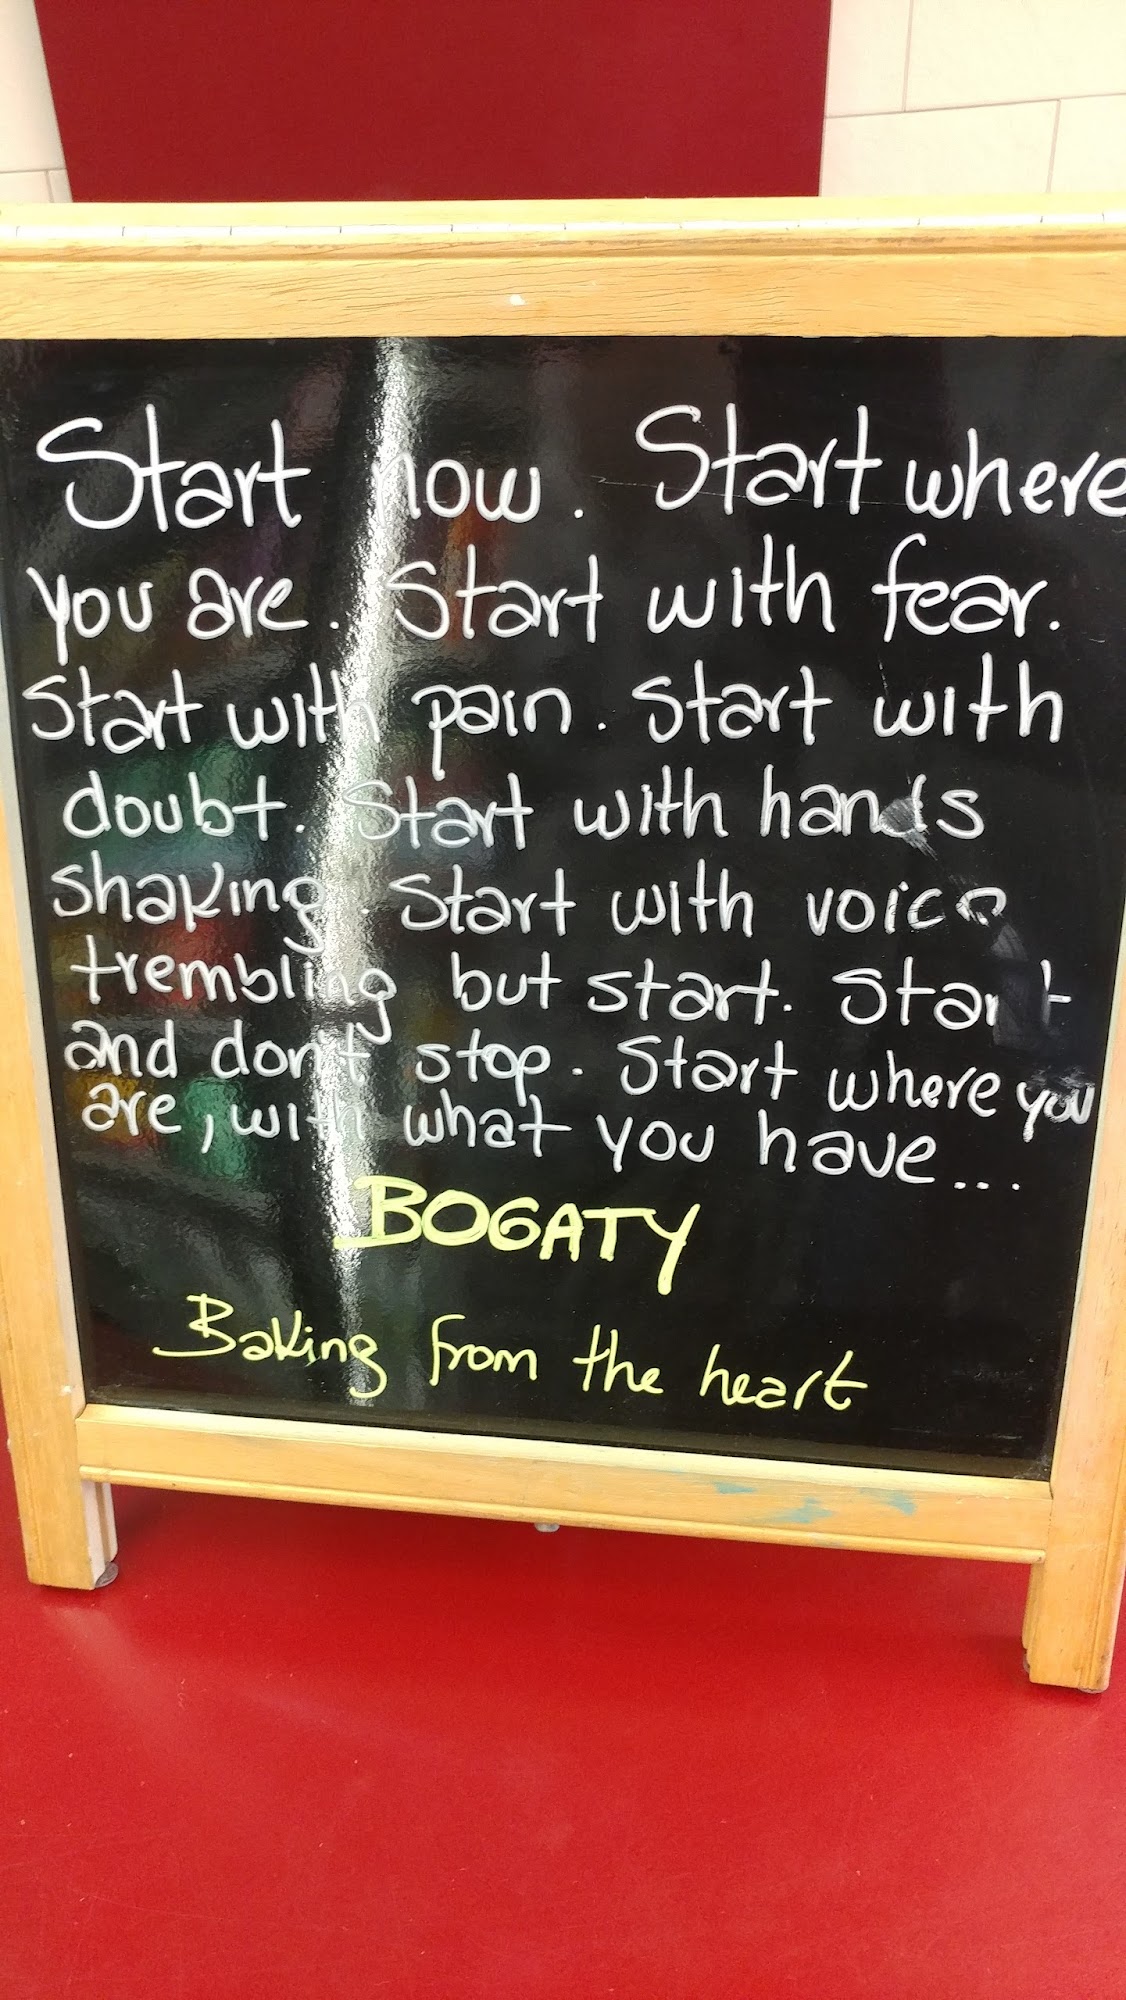 Start now. Start where
you are. Start with fear.
Start with pain. Start with
doubt. Start with hands
shaking. Start with voice
trembling but start. Start
and don't stop. Start where you
are, with what you have...
BOGATY
Baking from the heart